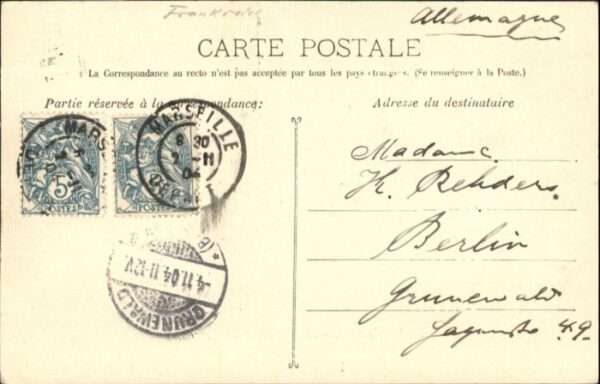 Frankreich
Allemagne
CARTE POSTALE
La Correspondance au recto n'est pas acceptée par tous les pays étrangers. (Se renseigner à la Poste.)
Partie réservée à la correspondance:
Adresse du destinataire
MARSEILLE
8 30
2 -11
04
DEPART
MARS
5c
POSTES
POSTES
Madame
H. Rehders
Berlin
Grunewald
49
-4.11.04.11-12V.
GRUNEWALD